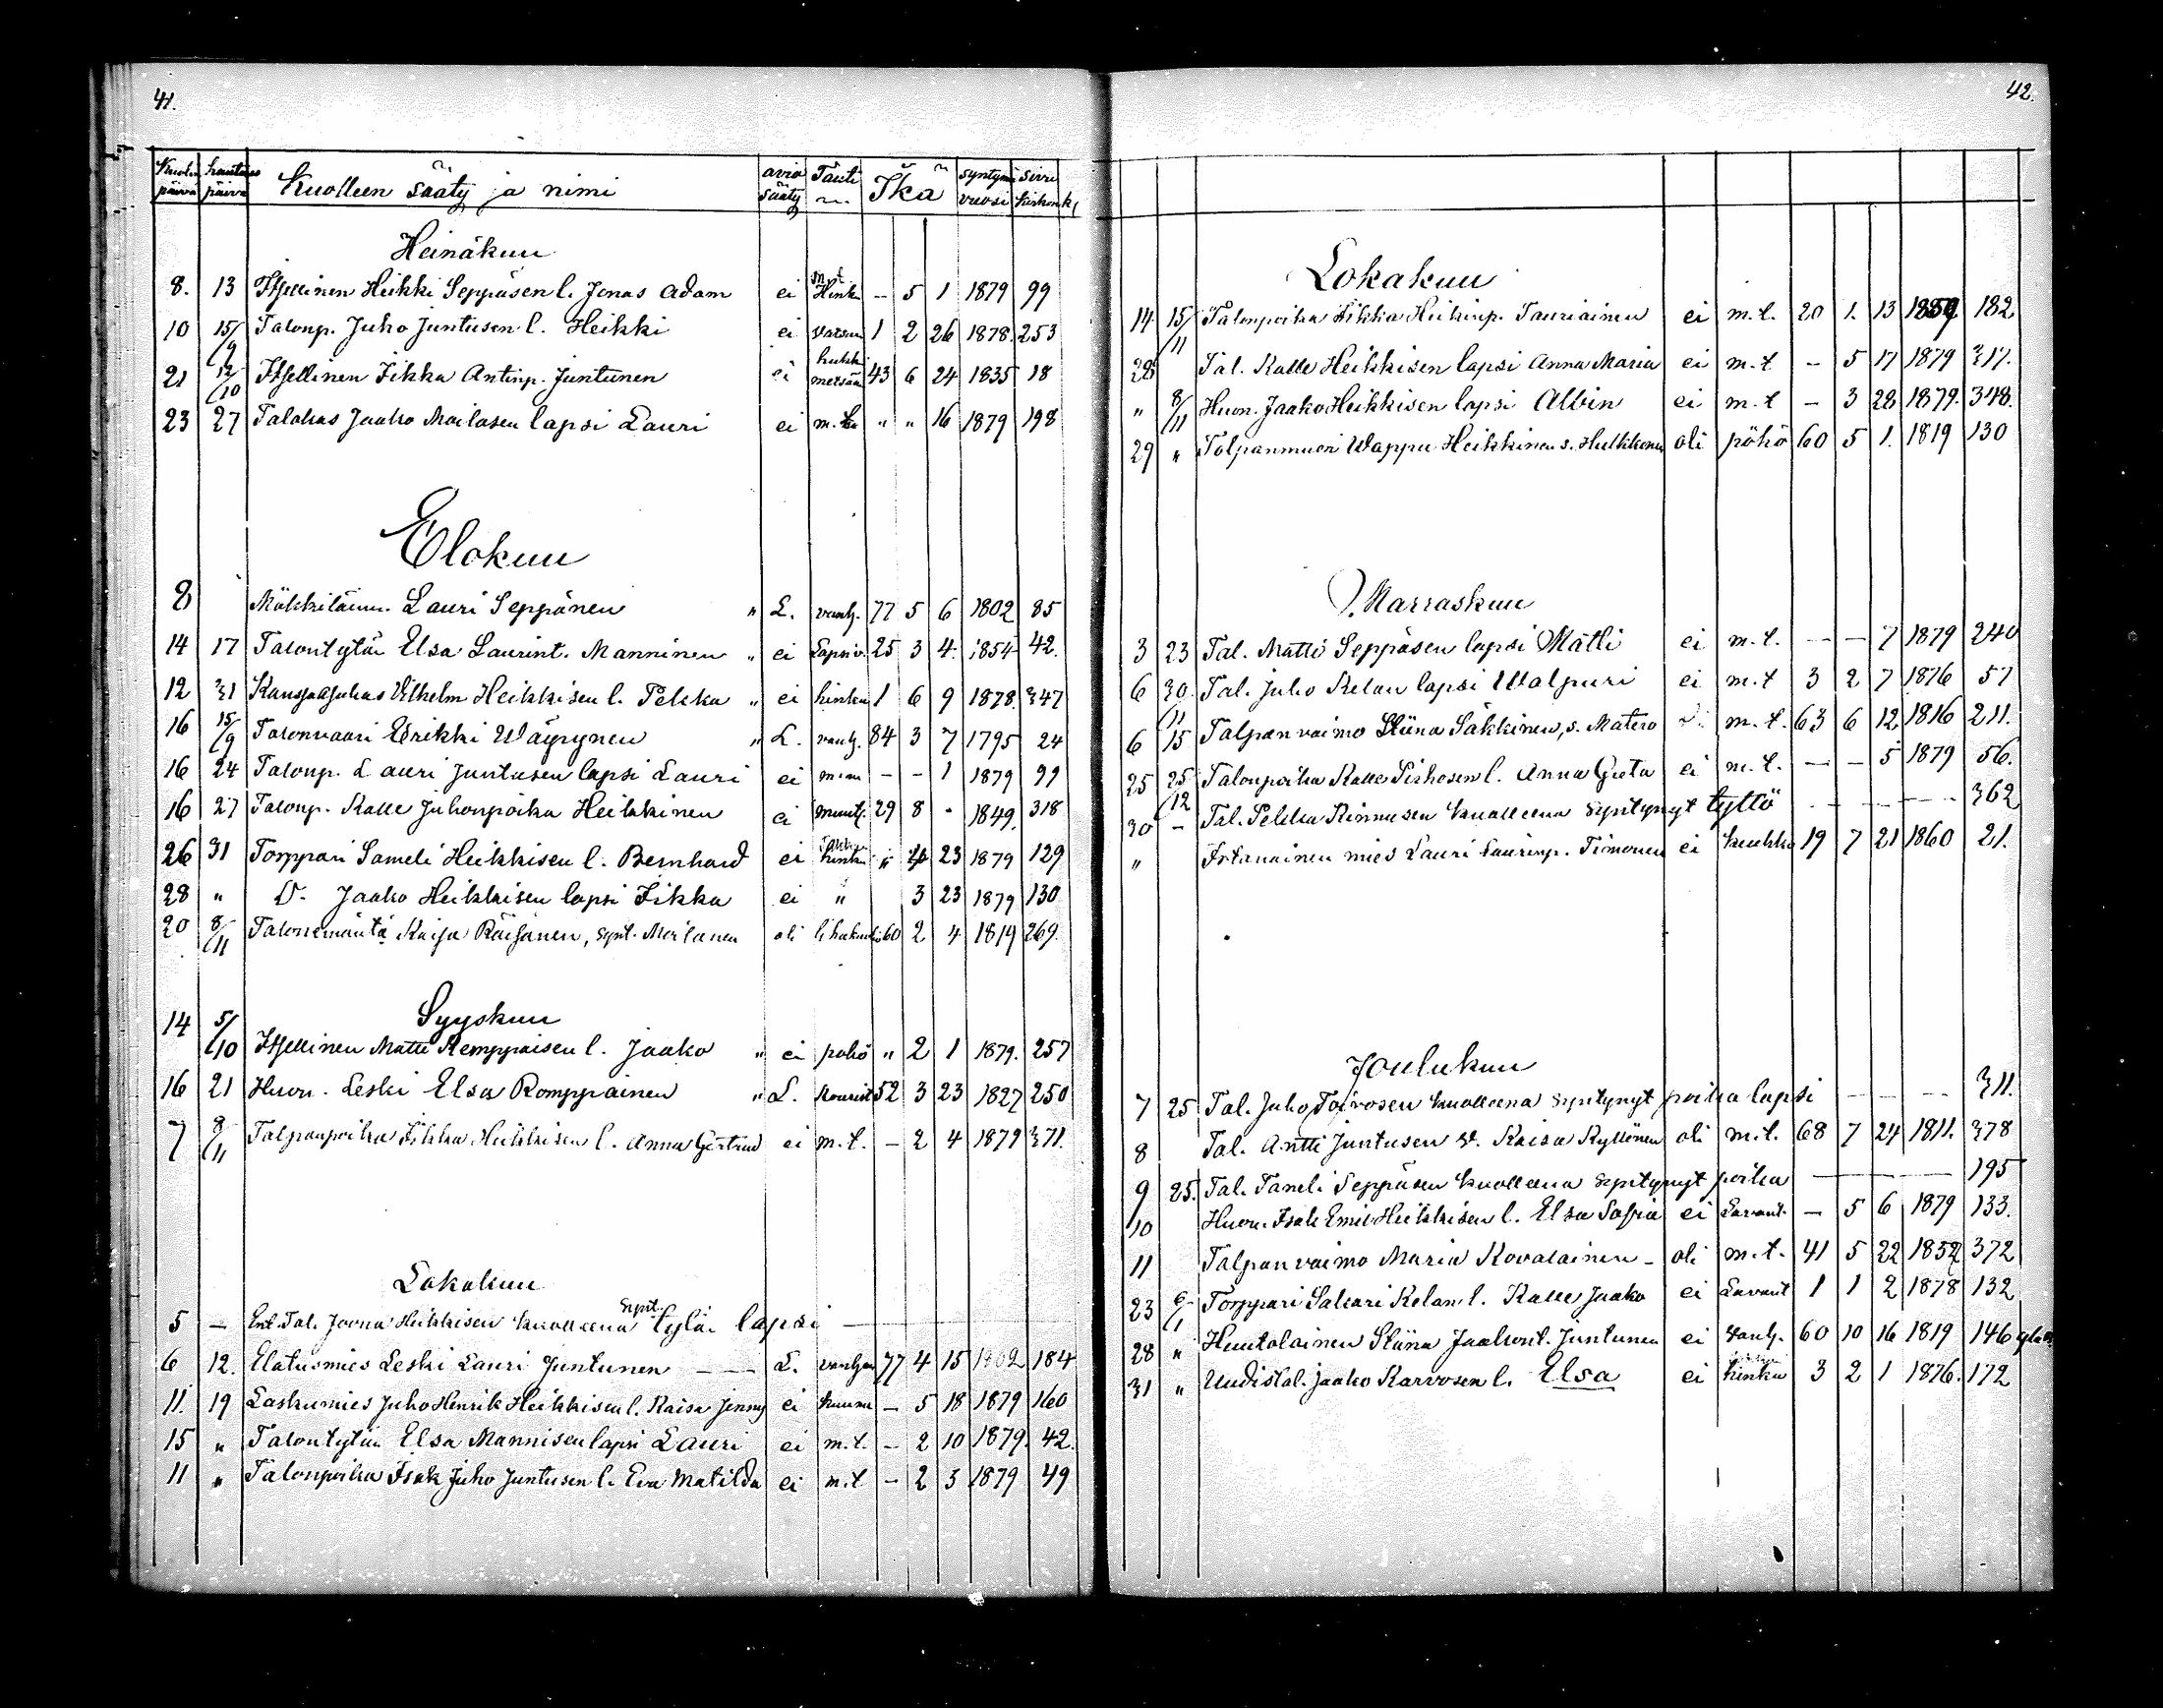 41.
Kuolin päivä hautaus päivä Kuolleen sääty ja nimi avio sääty Tauti Ikä syntymä vuosi Sivu kirkonk.
Heinäkuu
8. 13 Itsellinen Heikki Seppäsen l. Jonas Adam ei Hinku – 5 1 1879 99
10 15/9 Talonp. Juho Juntusen l. Heikki ei vatsan 1 2 26 1878. 253
21 12/10 Itsellinen Iikka Antinp. Juntunen ei hukki metsään 43 6 24 1835 18
23 27 Talokas Jaako Moilasen lapsi Lauri ei m. " " 16 1879 198
Elokuu
8 Mökkiläinen Lauri Seppänen " L. vanh. 77 5 6 1802 85
14 17 Talontytär Elsa Laurint. Manninen " ei Lapsiv. 25 3 4. 1854 42.
12 31 Wilhelm Heikkisen l. Pekka " ei hinku 1 6 9 1878. 347
16 15/9 Talonvaari Erikki Wäyrynen " L. vanh. 84 3 7 1795 24
16 24 Talonp. Lauri Juntusen lapsi Lauri ei – – 1 1879 99
16 27 Talonp. Kalle Juhonpoika Heikkinen ei 29 8 - 1849. 318
26 31 Torppari Sameli Heikkisen l. Bernhard ei hinku " 23 1879 129
28 " D. Jaako Heikkisen lapsi Iikka ei " 3 23 1879 130
20 8/11 Talonemäntä Kaisa Räisänen, synt. Moilanen oli 60 2 4 1819 269.
Syyskuu
14 5/10 Itsellinen Matti Kemppaisen l. Jaako " ei pöhö " 2 1 1879. 257
16 21 Huon. Leski Elsa Romppainen " L. 52 3 23 1827 250
7 8/11 Talponpoika Iikka Heikkisen l. Anna Gertrud ei m.t. – 2 4 1879 371.
Lokakuu
5 – Ent. Tal. Joona Heikkisen kuolleena synt. tytär lapsi
6 12. Elatusmies Leski Lauri Juntunen L. vanhan 77 4 15 1802 184
11. 19 Laskumies Juho Henrik Heikkisen l. Kaisa Jenny ei kuume – 5 18 1879 160
15 " Talontytär Elsa Mannisen lapsi Lauri ei m.t. – 2 10 1879. 42.
11 " Talonpoika Isak Juho Juntusen l. Eva Matilda ei m.t – 2 3 1879 49
42.
Lokakuu
14 15/11 Talonpoika Iikka Heikinp. Tauriainen ei m.t. 20 1. 13 1859 182
28 Tal. Kalle Heikkisen lapsi Anna Maria ei m.t – 5 17 1879 317.
" 8/11 Huon. Jaako Heikkisen lapsi Albin ei m.t – 3 28 1879. 348.
29 " Wappu Heikkinen s. Hulkkonen oli pöhö 60 5 1. 1819 130
Marraskuu
3 23 Tal. Matti Seppäsen lapsi Matti ei m.t. – – 7 1879 240
6 30. Tal. Juho Kelan lapsi Walpuri ei m.t 3 2 7 1876 57
6 11/15 Talpan vaimo Stiina Säkkinen, s. Matero m.t. 63 6 12 1816 211.
25 25/12 Talonpoika Kalle Pirhosen l. Anna Greta ei m.t. – – 5 1879 56.
30 – Tal. Pekka Kinnusen kuolleena syntynyt tyttö 362
" mies Lauri Laurinp. Timonen ei keuhko 19 7 21 1860 21.
Joulukuu
7 25 Tal. Juho Toivosen kuolleena syntynyt poika lapsi 311.
8 Tal. Antti Juntusen v. Kaisa Kyllönen oli m.t. 68 7 24 1811. 378
9 25. Tal. Taneli Seppäsen kuolleena syntynyt poika 195
10 Huon. Isak Emil Heikkisen l. Elsa Sofia ei Lavant. – 5 6 1879 133.
11 Talpan vaimo Maria Kovalainen oli m.t. 41 5 22 372
23 6/1 Torppari Sakari Kelan l. Kalle Jaako ei Lavant 1 1 2 1878 132
28 " Huutolainen Stiina Jaakont. Juntunen ei vanh. 60 10 16 1819 146
31 " Uudistal. Jaako Karvosen l. Elsa ei hinku 3 2 1 1876. 172